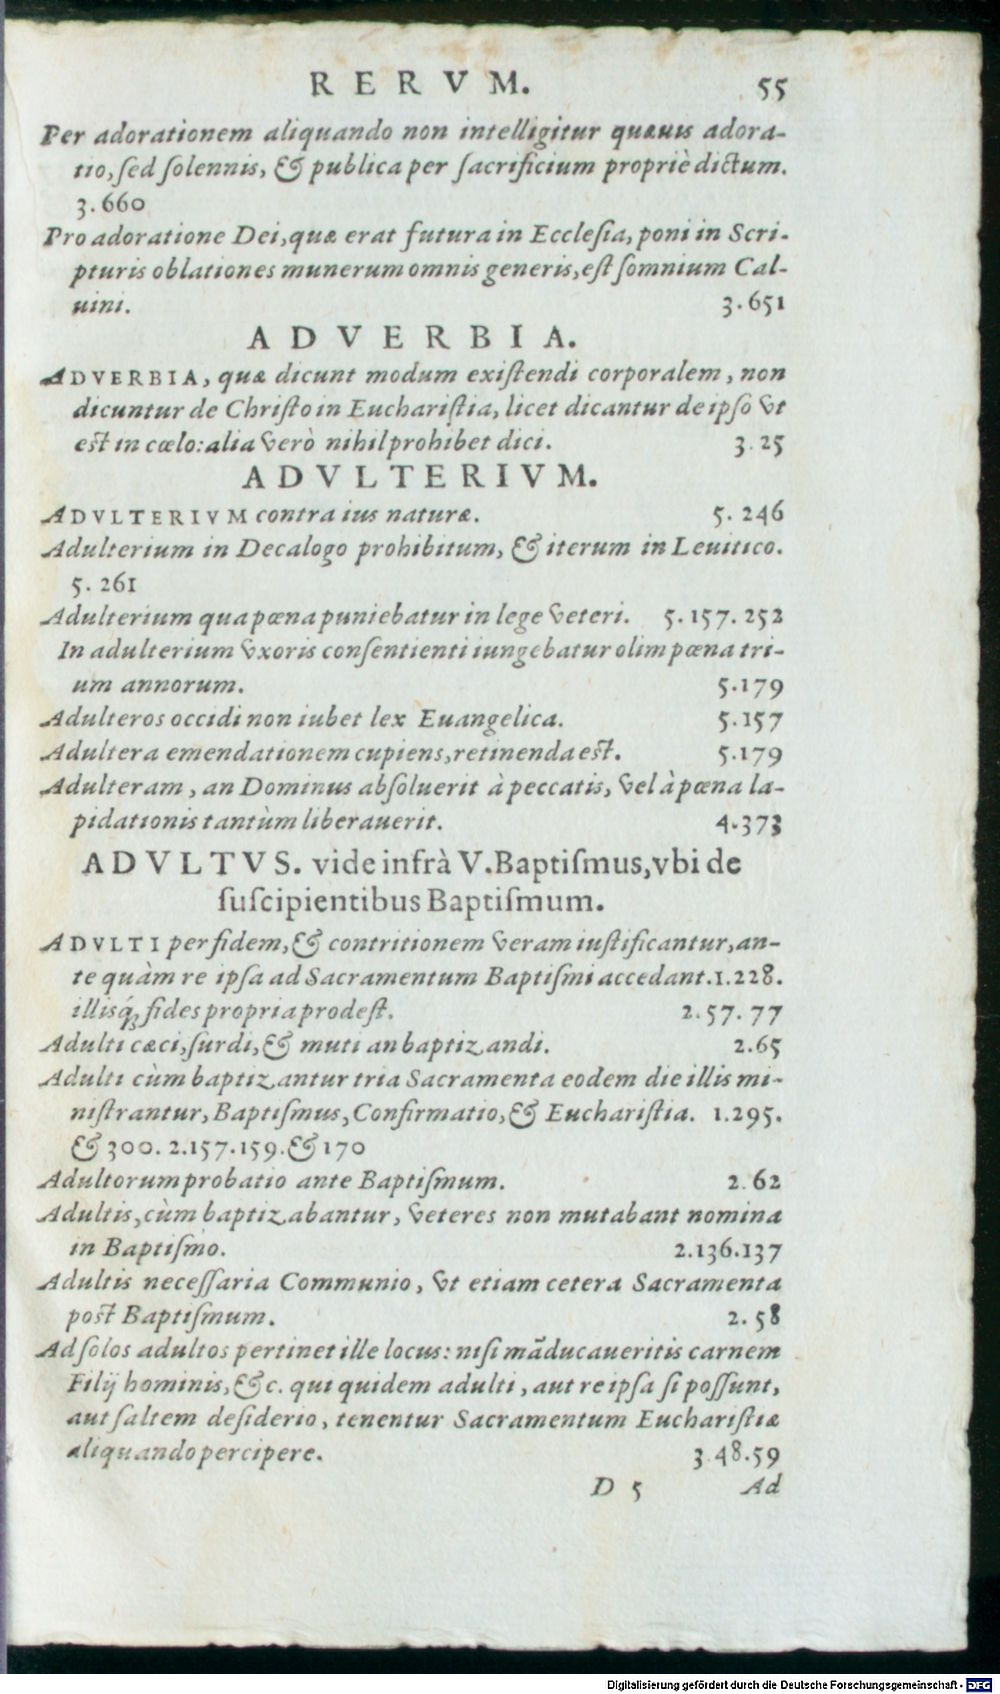 RERVM. 55
Per adorationem aliquando non intelligitur quæuis adora-
tio, ſed ſolennis, & publica per ſacrificium propriè dictum.
3.660
Pro adoratione Dei, quæ erat futura in Eccleſia, poni in Scri-
pturis oblationes munerum omnis generis, eſt ſomnium Cal-
uini. 3.651
ADVERBIA.
ADVERBIA, quæ dicunt modum exiſtendi corporalem, non
dicuntur de Chriſto in Euchariſtia, licet dicantur de ipſo vt
eſt in cœlo: alia verò nihil prohibet dici. 3.25
ADVLTERIVM.
ADVLTERIVM contra ius naturæ. 5. 246
Adulterium in Decalogo prohibitum, & iterum in Leuitico.
5. 261
Adulterium qua pœna puniebatur in lege veteri. 5.157.252
In adulterium vxoris conſentienti iungebatur olim pœna tri-
um annorum. 5.179
Adulteros occidi non iubet lex Euangelica. 5.157
Adultera emendationem cupiens, retinenda eſt. 5.179
Adulteram, an Dominus abſoluerit à peccatis, vel à pœna la-
pidationis tantùm liberauerit. 4.373
ADVLTVS. vide infrà V. Baptiſmus, vbi de
ſuſcipientibus Baptiſmum.
ADVLTI per fidem, & contritionem veram iuſtificantur, an-
te quàm re ipſa ad Sacramentum Baptiſmi accedant. 1.228.
illisq́; fides propria prodeſt. 2.57.77
Adulti cæci, ſurdi, & muti an baptizandi. 2.65
Adulti cùm baptizantur tria Sacramenta eodem die illis mi-
niſtrantur, Baptiſmus, Confirmatio, & Euchariſtia. 1.295.
& 300. 2.157.159. & 170
Adultorum probatio ante Baptiſmum. 2.62
Adultis, cùm baptizabantur, veteres non mutabant nomina
in Baptiſmo. 2.136.137
Adultis neceſſaria Communio, vt etiam cetera Sacramenta
poſt Baptiſmum. 2. 58
Ad ſolos adultos pertinet ille locus: niſi mãducaueritis carnem
Filij hominis, &c. qui quidem adulti, aut re ipſa ſi poſſunt,
aut ſaltem deſiderio, tenentur Sacramentum Euchariſtiæ
aliquando percipere. 3.48.59
D 5 Ad
Digitalisierung gefördert durch die Deutsche Forschungsgemeinschaft - DFG